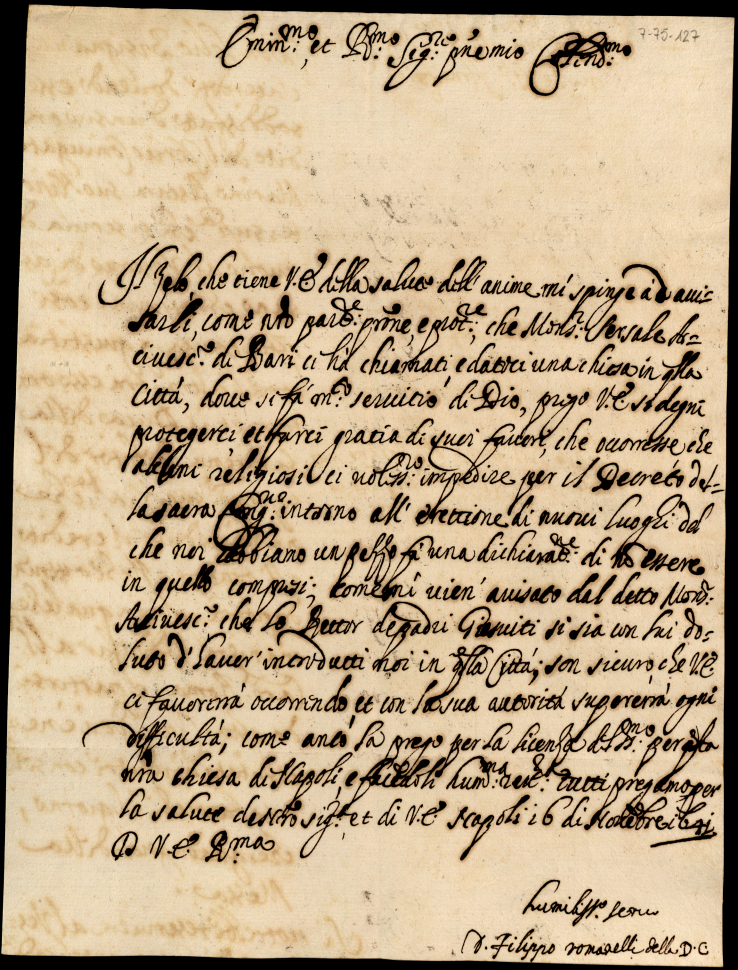 7-75-127
Emin.mo, et R.mo Sig.re pñe mio Col.mo
Il Zelo, che tiene V.E. della salute dell' anime mi spinge à d avi-
sarli, come nro pad.e prõne, e prot.e, che Mons.r Sersale Ar-
civesc.o di Bari ci hà chiamati, e datoci una chiesa in qlla
Città, dove si fà m.to servitio di Dio, prego V.E. si degni
proteggerci, et farci gratia di suoi favori, che occorresse che
alcuni religiosi ci voliss.ro impedire per il Decreto del-
la sacra Cong.ne intorno all' erettione di nuovi luoghi del
che noi abbiano un pezzo fà una dichiarat.e di nõ essere
in quello compresi; come mi vien' avisato dal detto Mons.r
Arcivesc.o che lo Rettor de padri Giesuiti si sia con lui do-
luto d'haver' introdutti noi in qlla Città; son sicuro che V.E.
ci favorerrà occorrendo et con la sua autorità supererrà ogni
difficultà; come ancò la prego per la licenza per qsta
nrã chiesa di Napoli, e facendoli hum.ma rev.a tutti pregamo per
la salute de nrõ sig.re et di V.E. Napoli 16 di Novebre 1641
D V.E. R.ma
humiliss.o servo
D. Filippo romanelli della D.C